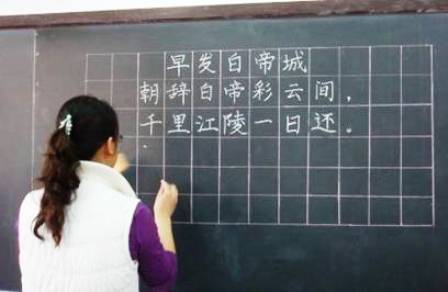 早发白帝城
朝辞白帝彩云间，
千里江陵一日还。